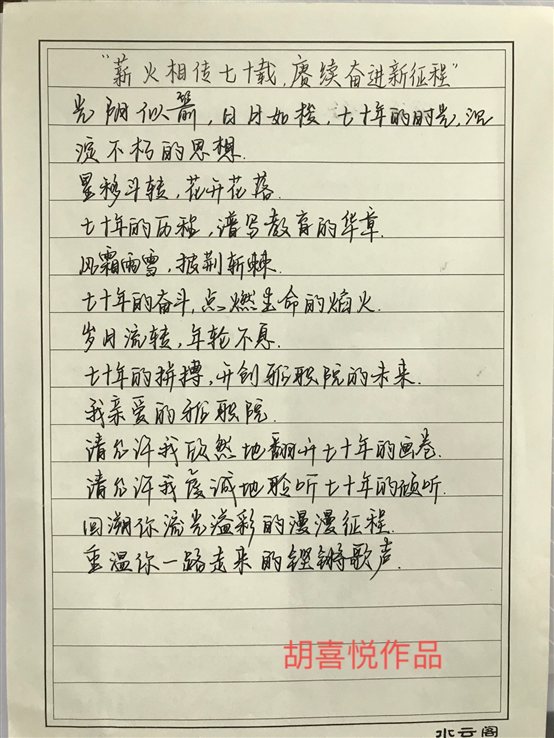 "薪火相传七十载，赓续奋进新征程"
光阴似箭，日月如梭，七十年的时光，沉
淀不朽的思想.
星移斗转，花开花落.
七十年的历程，谱写教育的华章.
风霜雨雪，披荆斩棘.
七十年的奋斗，点燃生命的焰火.
岁月流转，年轮不息.
七十年的拼搏，开创雅职院的未来.
我亲爱的雅职院.
请允许我欣然地翻开七十年的画卷.
请允许我虔诚地聆听七十年的倾听.
回溯你流光溢彩的漫漫征程.
重温你一路走来的铿锵歌声.
胡喜悦作品
水云阁